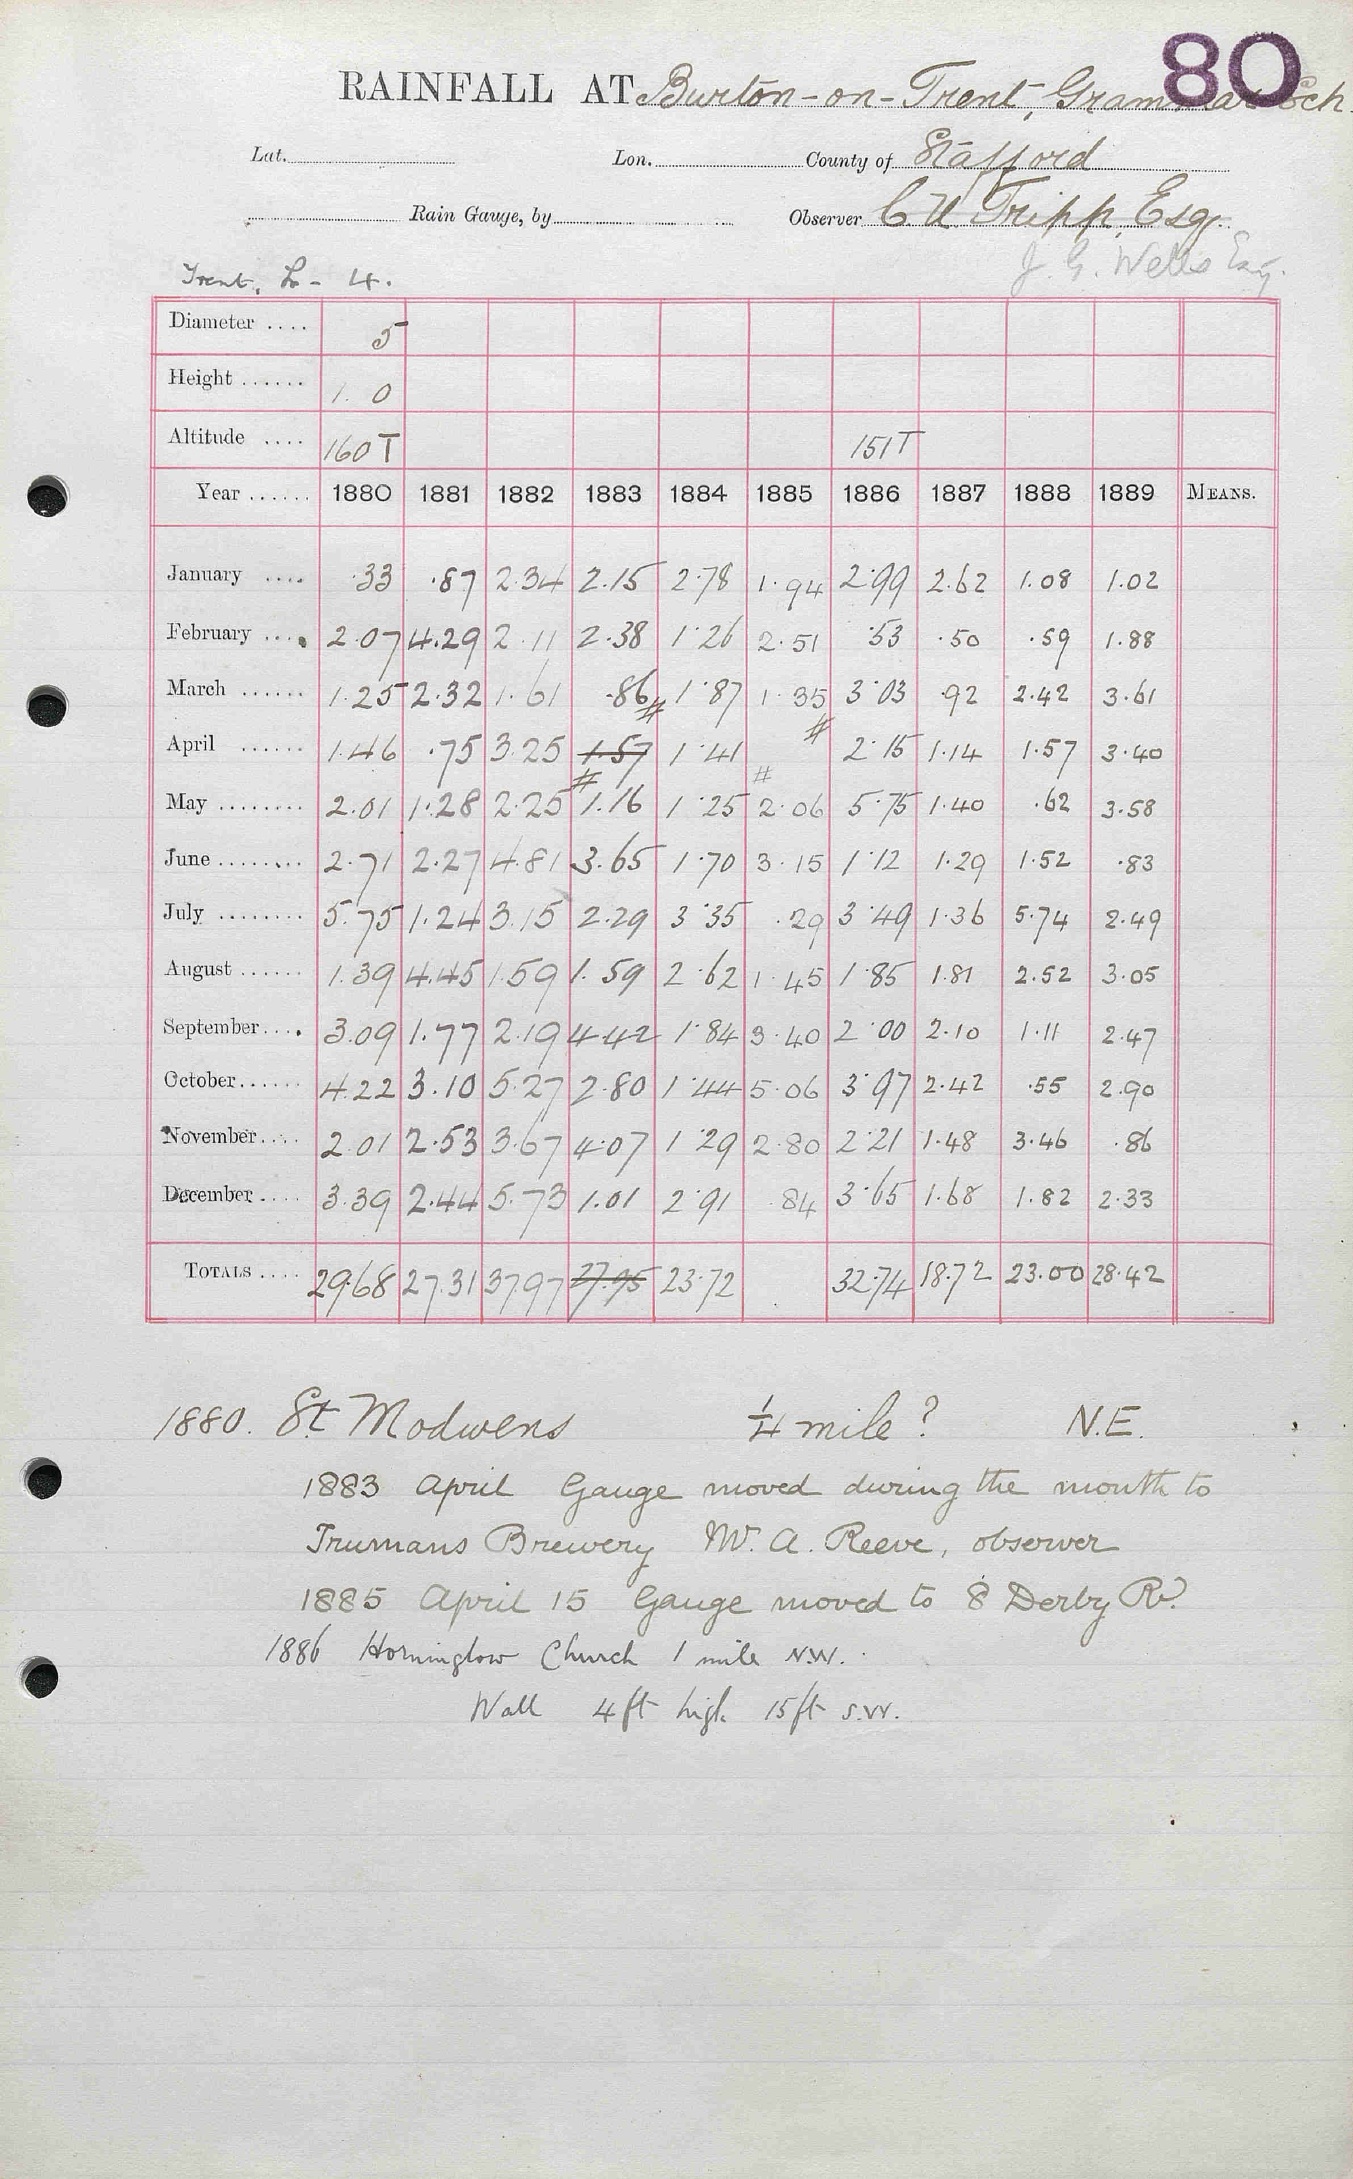 80
RAINFALL AT Burton-on-Trent, Grammar Sch.
Lat. Lon. County of Stafford
Rain Gauge, by Observer C. U. Tripp, Esq.
J. G. Wells Esq.
Trent, L - 4.
Diameter .... 5
Height ...... 1. 0
Altitude .... 160 T 151 T
Year ...... 1880 1881 1882 1883 1884 1885 1886 1887 1888 1889 MEANS.
January .... .33 .87 2.34 2.15 2.78 1.94 2.99 2.62 1.08 1.02
February .... 2.07 4.29 2.11 2.38 1.26 2.51 .53 .50 .59 1.88
March ...... 1.25 2.32 1.61 .86 # 1.87 1.35 # 3.03 .92 2.42 3.61
April ...... 1.46 .75 3.25 1.57 1.41 2.15 1.14 1.57 3.40
May ........ 2.01 1.28 2.25 # 1.16 1.25 # 2.06 5.75 1.40 .62 3.58
June ........ 2.71 2.27 4.81 3.65 1.70 3.15 1.12 1.29 1.52 .83
July ........ 5.75 1.24 3.15 2.29 3.35 .29 3.49 1.36 5.74 2.49
August ...... 1.39 4.45 1.59 1.59 2.62 1.45 1.85 1.81 2.52 3.05
September.... 3.09 1.77 2.19 4.42 1.84 3.40 2.00 2.10 1.11 2.47
October...... 4.22 3.10 5.27 2.80 1.44 5.06 3.97 2.42 .55 2.90
November.... 2.01 2.53 3.67 4.07 1.29 2.80 2.21 1.48 3.46 .86
December.... 3.39 2.44 5.73 1.01 2.91 .84 3.65 1.68 1.82 2.33
TOTALS .... 29.68 27.31 37.97 27.95 23.72 32.74 18.72 23.00 28.42
1880. St Modwens 1/4 mile ? N.E.
1883 April Gauge moved during the month to
Trumans Brewery W. A. Reeve, observer
1885 April 15 Gauge moved to 8 Derby Rd.
1886 Horninglow Church 1 mile N.W.
Wall 4 ft high 15 ft S.W.